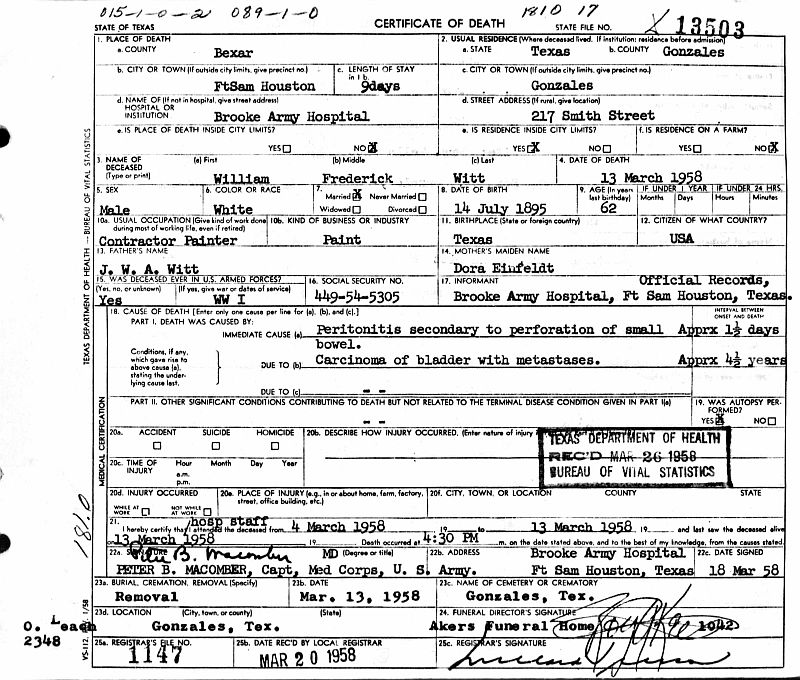 015-1-0-2 089-1-0 1810 17
STATE OF TEXAS CERTIFICATE OF DEATH STATE FILE NO. 13503
1. PLACE OF DEATH 2. USUAL RESIDENCE (Where deceased lived. If institution: residence before admission)
a. COUNTY Bexar a. STATE Texas b. COUNTY Gonzales
b. CITY OR TOWN (If outside city limits, give precinct no.) c. LENGTH OF STAY in 1 b. c. CITY OR TOWN (If outside city limits, give precinct no.)
FtSam Houston 9days Gonzales
d. NAME OF (If not in hospital, give street address) d. STREET ADDRESS (If rural, give location)
HOSPITAL OR
INSTITUTION Brooke Army Hospital 217 Smith Street
e. IS PLACE OF DEATH INSIDE CITY LIMITS? e. IS RESIDENCE INSIDE CITY LIMITS? f. IS RESIDENCE ON A FARM?
YES NO X YES X NO YES NO X
3. NAME OF DECEASED (Type or print) (a) First (b) Middle (c) Last 4. DATE OF DEATH
William Frederick Witt 13 March 1958
5. SEX 6. COLOR OR RACE 7. Married X Never Married 8. DATE OF BIRTH 9. AGE (In years last birthday) IF UNDER 1 YEAR IF UNDER 24 HRS.
Months Days Hours Minutes
Male White Widowed Divorced 14 July 1895 62
10a. USUAL OCCUPATION (Give kind of work done during most of working life, even if retired) 10b. KIND OF BUSINESS OR INDUSTRY 11. BIRTHPLACE (State or foreign country) 12. CITIZEN OF WHAT COUNTRY?
Contractor Painter Paint Texas USA
13. FATHER'S NAME 14. MOTHER'S MAIDEN NAME
J. W. A. Witt Dora Einfeldt
15. WAS DECEASED EVER IN U.S. ARMED FORCES? 16. SOCIAL SECURITY NO. 17. INFORMANT Official Records,
(Yes, no, or unknown) (If yes, give war or dates of service)
Yes WW I 449-54-5305 Brooke Army Hospital, Ft Sam Houston, Texas.
18. CAUSE OF DEATH [Enter only one cause per line for (a), (b), and (c).] INTERVAL BETWEEN ONSET AND DEATH
PART I. DEATH WAS CAUSED BY:
IMMEDIATE CAUSE (a) Peritonitis secondary to perforation of small Apprx 1½ days
bowel.
Conditions, if any, which gave rise to above cause (a), stating the underlying cause last. DUE TO (b) Carcinoma of bladder with metastases. Apprx 4½ years
DUE TO (c) - -
PART II. OTHER SIGNIFICANT CONDITIONS CONTRIBUTING TO DEATH BUT NOT RELATED TO THE TERMINAL DISEASE CONDITION GIVEN IN PART I(a) 19. WAS AUTOPSY PERFORMED?
- - YES X NO
20a. ACCIDENT SUICIDE HOMICIDE 20b. DESCRIBE HOW INJURY OCCURRED. (Enter nature of injury
TEXAS DEPARTMENT OF HEALTH
REC'D MAR 26 1958
BUREAU OF VITAL STATISTICS
20c. TIME OF INJURY Hour Month Day Year
a.m.
p.m.
20d. INJURY OCCURRED 20e. PLACE OF INJURY (e.g., in or about home, farm, factory, street, office building, etc.) 20f. CITY, TOWN, OR LOCATION COUNTY STATE
WHILE AT WORK NOT WHILE AT WORK
21. hosp staff
I hereby certify that I attended the deceased from 4 March 1958 19 to 13 March 1958 19 and last saw the deceased alive
13 March 1958 19 Death occurred at 4:30 PM m. on the date stated above, and to the best of my knowledge, from the causes stated.
22a. SIGNATURE Peter B. Macomber MD (Degree or title) 22b. ADDRESS Brooke Army Hospital 22c. DATE SIGNED
PETER B. MACOMBER, Capt, Med Corps, U. S. Army. Ft Sam Houston, Texas 18 Mar 58
23a. BURIAL, CREMATION, REMOVAL (Specify) 23b. DATE 23c. NAME OF CEMETERY OR CREMATORY
Removal Mar. 13, 1958 Gonzales, Tex.
23d. LOCATION (City, town, or county) (State) 24. FUNERAL DIRECTOR'S SIGNATURE
O. Leach Gonzales, Tex. Akers Funeral Home 1042
2348
25a. REGISTRAR'S FILE NO. 25b. DATE REC'D BY LOCAL REGISTRAR 25c. REGISTRAR'S SIGNATURE
1147 MAR 20 1958
TEXAS DEPARTMENT OF HEALTH — BUREAU OF VITAL STATISTICS
MEDICAL CERTIFICATION
1810
VS-112. 1/58